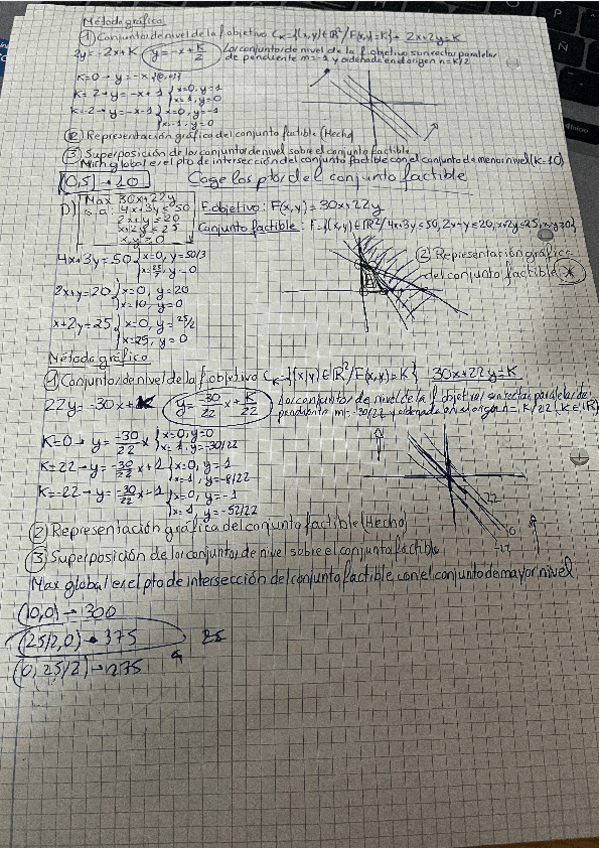 Método gráfico
① Conjuntos de nivel de la f. objetivo Cₖ={(x,y)∈ℝ²/F(x,y)=K} 2x+2y=K
2y=-2x+K y=-x+K/2 Los conjuntos de nivel de la f. objetivo son rectas paralelas
de pendiente m=-1 y ordenada en el origen n=K/2
K=0→y=-x
K=2→y=-x+1 {x=0, y=1
x=1, y=0
K=-2→y=-x-1 {x=0, y=-1
x=-1, y=0
② Representación gráfica del conjunto factible (Hecho)
③ Superposición de los conjuntos de nivel sobre el conjunto factible
Min global es el pto de intersección del conjunto factible con el conjunto de menor nivel (K=10)
(0,5)→10 Coge los ptos del conjunto factible
D) Max 30x+22y F. objetivo: F(x,y)=30x+22y
s.a 4x+3y≤50
2x+y≤20
x+2y≤25
x,y≥0
Conjunto factible: F={(x,y)∈ℝ²/4x+3y≤50, 2x+y≤20, x+2y≤25, x,y≥0}
4x+3y=50 {x=0, y=50/3
y=0
② Representación gráfica
del conjunto factible
2x+y=20 {x=0, y=20
x=10, y=0
x+2y=25 {x=0, y=25/2
x=25, y=0
Método gráfico
① Conjuntos de nivel de la f. objetivo Cₖ={(x,y)∈ℝ²/F(x,y)=K} 30x+22y=K
22y=-30x+K y=-30/22x+K/22 Los conjuntos de nivel de la f. objetivo son rectas paralelas de
pendiente m=-30/22 y ordenada en el origen n=K/22 (K∈ℝ)
K=0→y=-30/22x {x=0, y=0
x=1, y=-30/22
K=22→y=-30/22x+1 {x=0, y=1
x=1, y=-8/22
K=-22→y=-30/22x-1 {x=0, y=-1
x=1, y=-52/22
22
0
-22
② Representación gráfica del conjunto factible (Hecho)
③ Superposición de los conjuntos de nivel sobre el conjunto factible
Max global es el pto de intersección del conjunto factible con el conjunto de mayor nivel
(10,0)→300
(25/2,0)→375 25
(0,25/2)→275